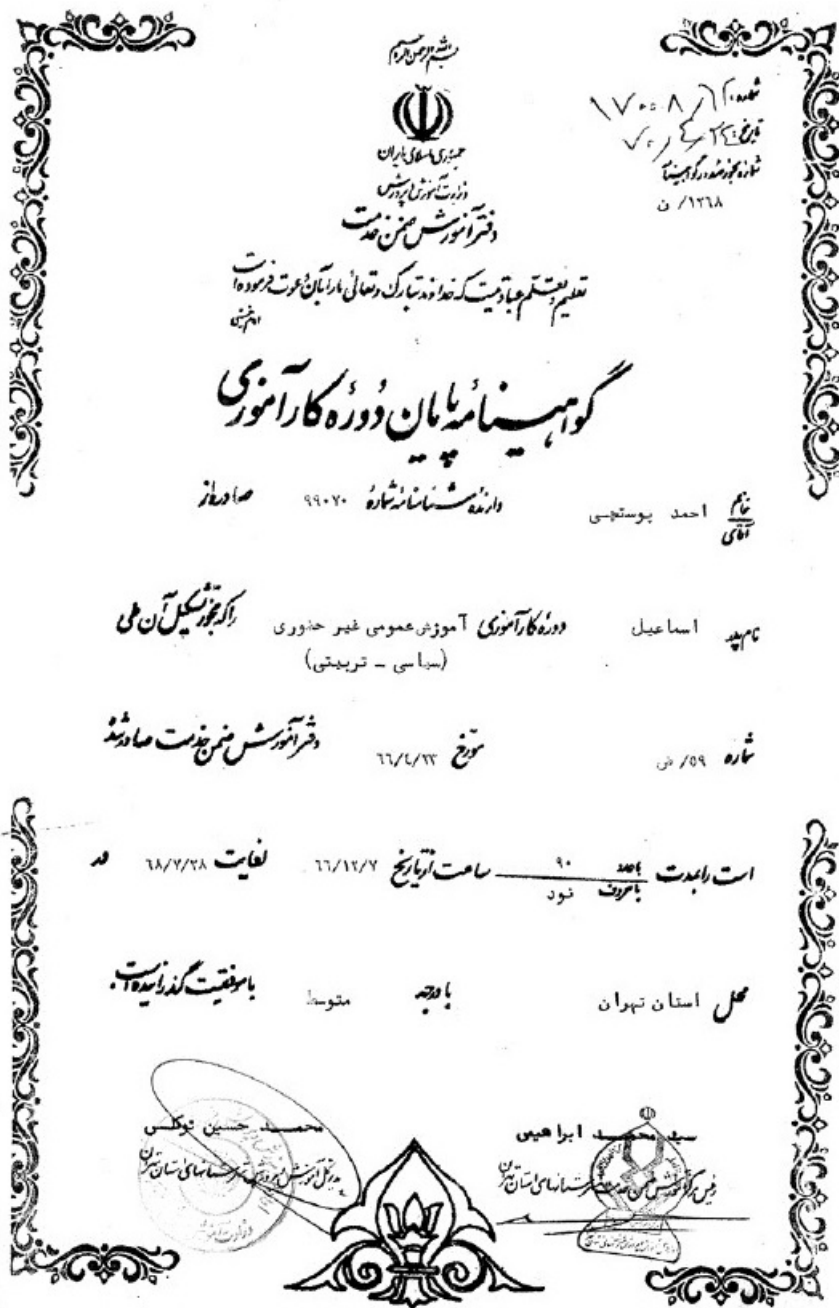 بسم الله الرحمن الرحیم
جمهوری اسلامی ایران
وزارت آموزش و پرورش
دفتر آموزش ضمن خدمت
شماره: ۱۷۰۰۸/۶۲
تاریخ:
شماره مجوز صدور گواهینامه
۱۲۶۸/ ن
تعلیم و تعلم عبادتیست که خداوند تبارک و تعالی ما را بآن دعوت فرموده است
امام خمینی
گواهینامه پایان دوره کارآموزی
خانم / آقای احمد پوستچی دارنده شناسنامه شماره ۹۹۰۷۰ صادر از
نام پدر اسماعیل دوره کارآموزی آموزش عمومی غیر حضوری را که مجوز تشکیل آن طی
(سیاسی - تربیتی)
شماره ۵۹/ ض مورخ ۶۶/۴/۲۳ دفتر آموزش ضمن خدمت صادر شده
است را بمدت باعدد ۹۰ ساعت از تاریخ ۶۶/۱۲/۷ لغایت ۶۸/۷/۲۸ در
باحروف نود
محل استان تهران با درجه متوسط با موفقیت گذرانیده است.
سید محمد ابراهیمی
رئیس مرکز آموزش ضمن خدمت شهرستانهای استان تهران
محمد حسین توکلی
مدیر کل آموزش و پرورش شهرستانهای استان تهران